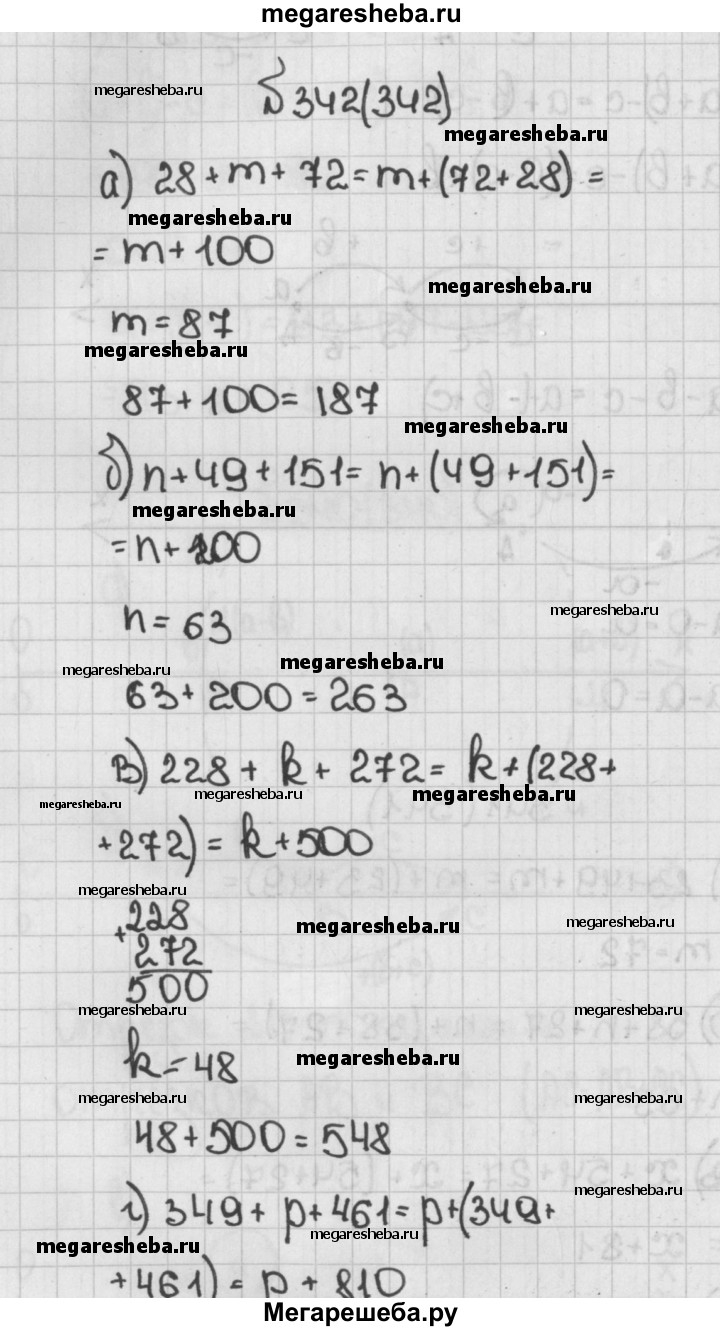 megaresheba.ru
megaresheba.ru
№ 342(342)
megaresheba.ru
а) 28 + m + 72 = m + (72 + 28) =
megaresheba.ru
= m + 100
megaresheba.ru
m = 87
megaresheba.ru
87 + 100 = 187
megaresheba.ru
б) n + 49 + 151 = n + (49 + 151) =
megaresheba.ru
= n + 200
megaresheba.ru
n = 63
megaresheba.ru
megaresheba.ru
63 + 200 = 263
в) 228 + k + 272 = k + (228 +
megaresheba.ru megaresheba.ru megaresheba.ru
+ 272) = k + 500
megaresheba.ru
+ 228
megaresheba.ru megaresheba.ru
272
500
megaresheba.ru megaresheba.ru
k = 48
megaresheba.ru
megaresheba.ru megaresheba.ru
48 + 500 = 548
megaresheba.ru
г) 349 + p + 461 = p + (349 +
megaresheba.ru megaresheba.ru
+ 461) = p + 810
Мегарешеба.ру